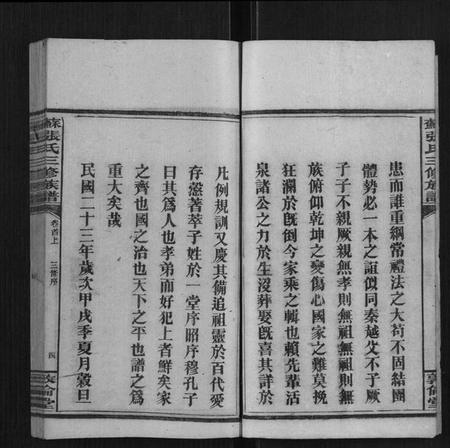 蘇張氏三修族譜
敦倫堂
患而誰重綱常禮法之大苟不固結團
體勢必一本之誼似同秦越父不子厥
子子不親厥親無孝則無祖無祖則無
族俯仰乾坤之變傷心國家之難莫挽
狂瀾於既倒今家乘之輯也賴先輩活
泉諸公之力於生沒葬娶既喜其詳於
凡例規訓又慶其備追祖靈於百代愛
存愨著萃子姓於一堂序昭序穆孔子
曰其為人也孝弟而好犯上者鮮矣家
之齊也國之治也天下之平也譜之為
重大矣哉
民國二十三年歲次甲戌季夏月穀旦
蘇張氏三修族譜
卷首上
三修序
四
敦倫堂